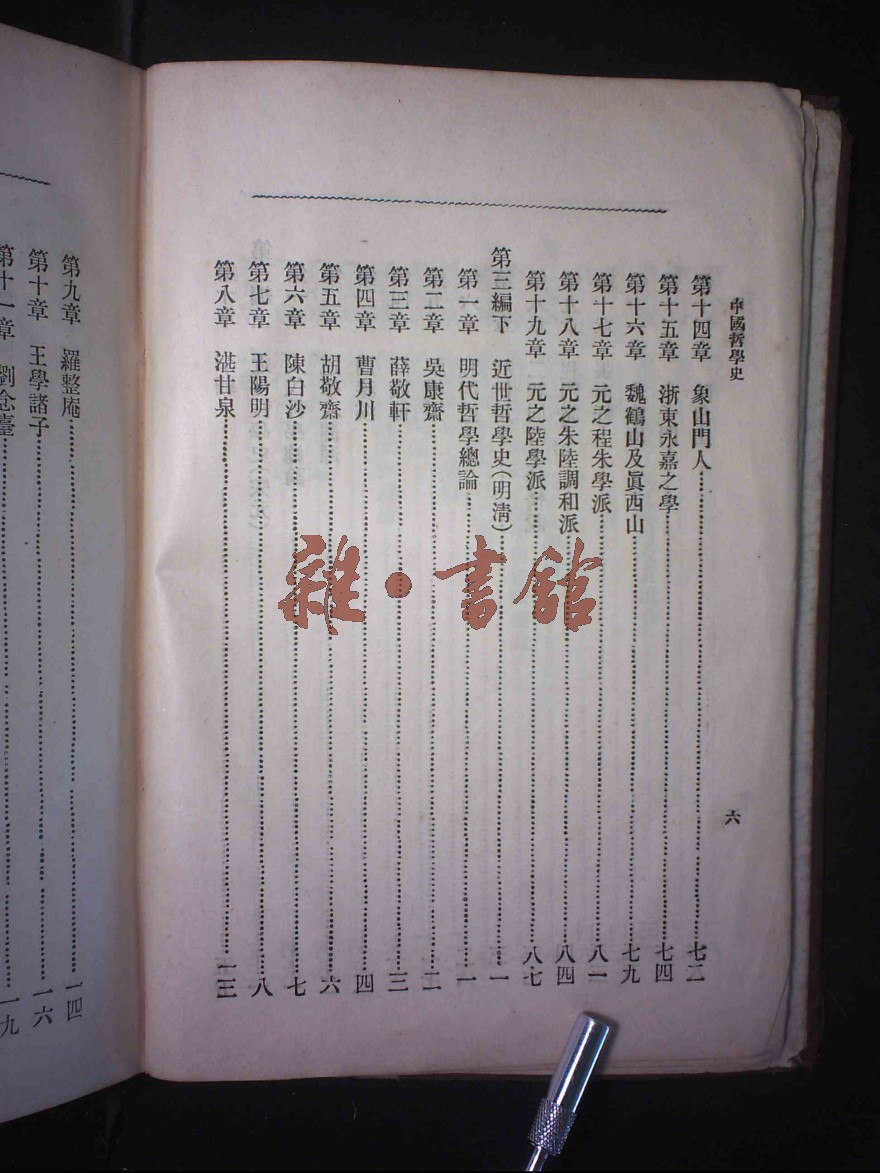 中國哲學史
六
第十四章　象山門人……七二
第十五章　浙東永嘉之學……七四
第十六章　魏鶴山及眞西山……七九
第十七章　元之程朱學派……八一
第十八章　元之朱陸調和派……八四
第十九章　元之陸學派……八七
第三編下　近世哲學史(明清)……一
第一章　明代哲學總論……一
第二章　吳康齋……二
第三章　薛敬軒……三
第四章　曹月川……四
第五章　胡敬齋……六
第六章　陳白沙……七
第七章　王陽明……八
第八章　湛甘泉……一三
第九章　羅整庵……一四
第十章　王學諸子……一六
第十一章　劉念臺……一九
雜·書館